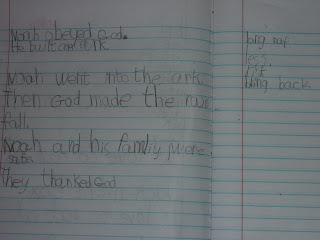 Noah obeyed God.
He built an ark.
Noah went into the ark.
Then God made the rain
fall.
Noah and his family
safe.
They thanked God
big
bring back